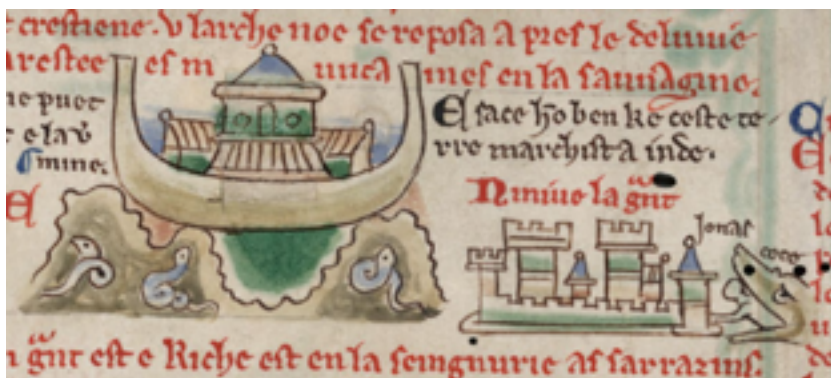 crestiene. v larche noe se reposa apres le deluuie
arestee es m unca mes en la sauuagine.
ne puet
e la u
mine.
E face ho ben ke ceste te
rre marchist a inde.
Niniue la gnt
Jonas
n gnt est e Riche est en la seingnurie as sarrazins.